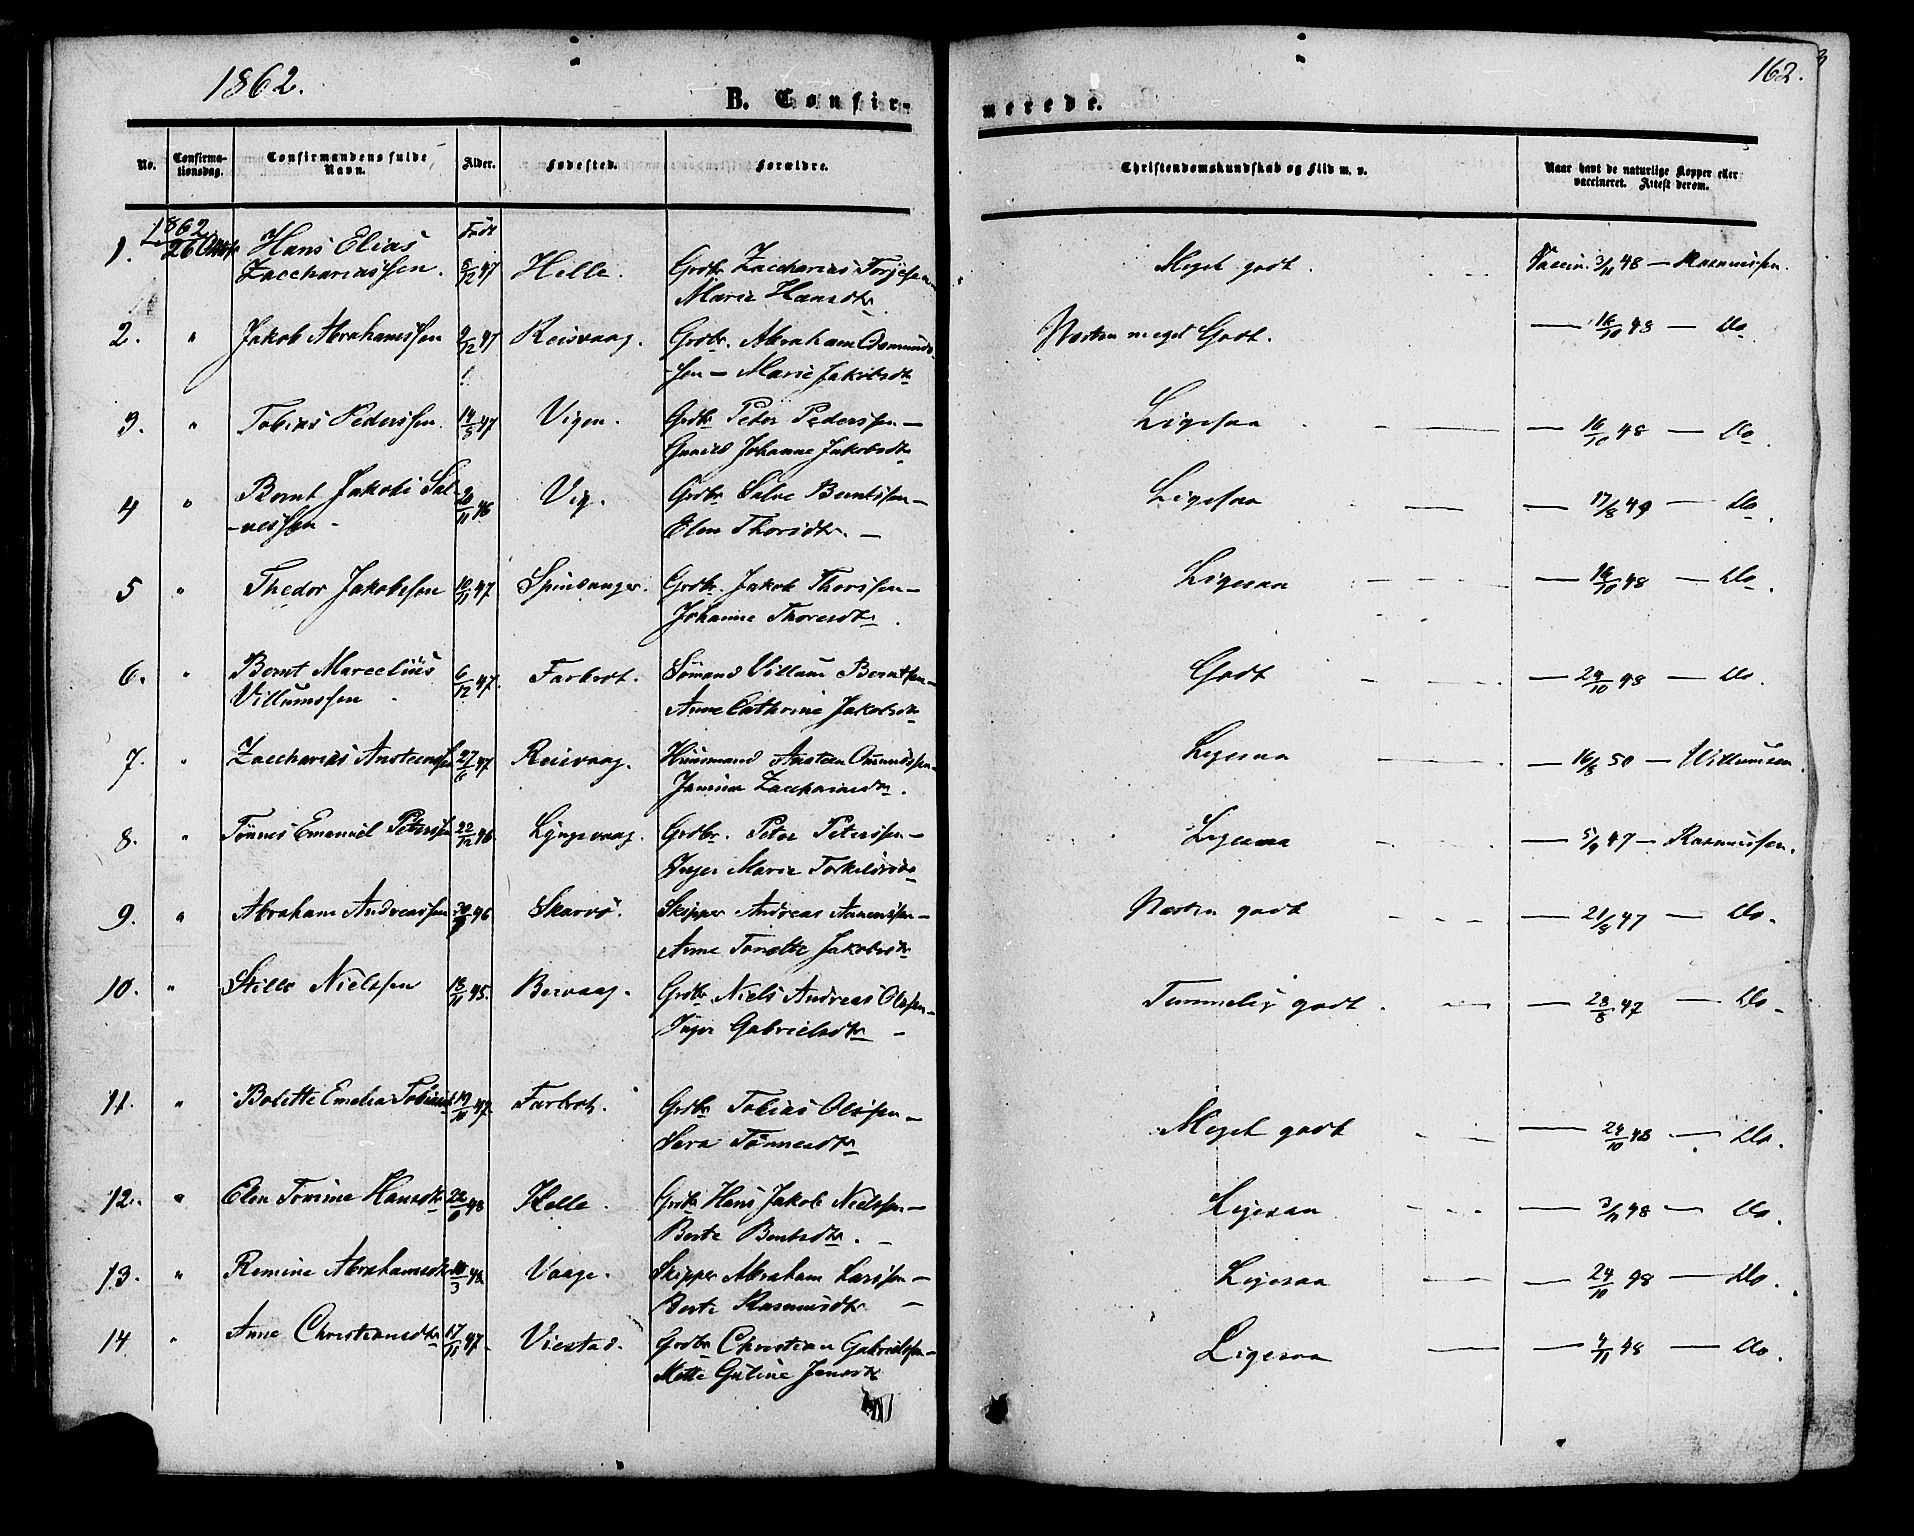 1862.
162.
B. Confirmerede.
No. Confirmationsdag. Confirmandens fulde Navn. Alder. Fødested. Forældre. Christendomskundskab og Flid m. v. Naar havt de naturlige Kopper eller vaccineret. Attest derom.
1862 Født
1. 26 Hans Elias Zacchariassen. 5/12 47 Helle. Grdbr. Zaccharias Torjesen Marie Hansdtr. Meget godt. Vaccin. 3/11 48 — Rasmussen.
2. " Jakob Abrahamssen 2/12 47 Reisvaag. Grdbr. Abraham Osmundssen — Marie Jakobsdtr Næsten meget Godt. — 16/10 48 — Do
3. " Tobias Pederssen 14/8 47 Vigen. Grdbr Peter Pederssen — Gunild Johanne Jakobsdtr Ligesaa — 16/10 48 — Do.
4 " Bernt Jakob Salvessen - 20/11 46 Vig. Grdbr Salve Berntssen — Elen Thorsdtr. — Ligesaa — 17/8 49 — Do.
5 " Thedor Jakobssen 10/11 47 Spindvanger. Grdbr. Jakob Thorssen — Johanne Thoresdtr. Ligesaa — 16/10 48 — Do.
6. " Bernt Marcelius Villumssen 6/12 47. Farbrot. Sømand Villum Berntsen — Anne Cathrine Jakobsdtr Godt — 24/10 48 — Do.
7. " Zaccharias Austenssen 27/6 47 Reisvaag. Huusmand Austen Omundssen — Jamine Zacchariasdtr. Ligesaa — 16/8 50 — Villumsen.
8. " Tønnes Emanuel Peterssen 22/12 46. Lyngsvaag. Grdbr. Peter Peterssen — Inger Marie Torkelsdtr Ligesaa — 5/9 47 — Rasmussen.
9. " Abraham Andreassen 46 Skarvø. Skipper Andreas — Anne Tonette Jakobsdtr Næsten godt — 21/8 47 — Do.
10. " Stille Nielssen 18/11 45. Bervaag. Grdbr Niels Andreas Olssen — Inger Gabrielsdtr — Temmelig godt. — 28/8 47 — Do.
11. " Bolette Emelia 19/10 47. Farbrot. Grdbr Tobias Olssen — Sara Tønnesdtr Meget godt — 24/10 48 — Do.
12. " Elen Tomine Hansdtr Helle. Grdbr Hans Jakob Nielssen — Berte Berntsdtr. — Ligesaa — 3/11 48 — Do.
13. " Remine Abrahamsdtr Vaage. Skipper Abraham Larssen — Berte Rasmusdtr — Ligesaa — 24/10 48 — Do.
14 " Anne Christiansdtr 17/11 47. Viestad. Grdbr Christian Gabrielssen — Mette Guline Jensdtr Ligesaa — 4/11 48 — Do.